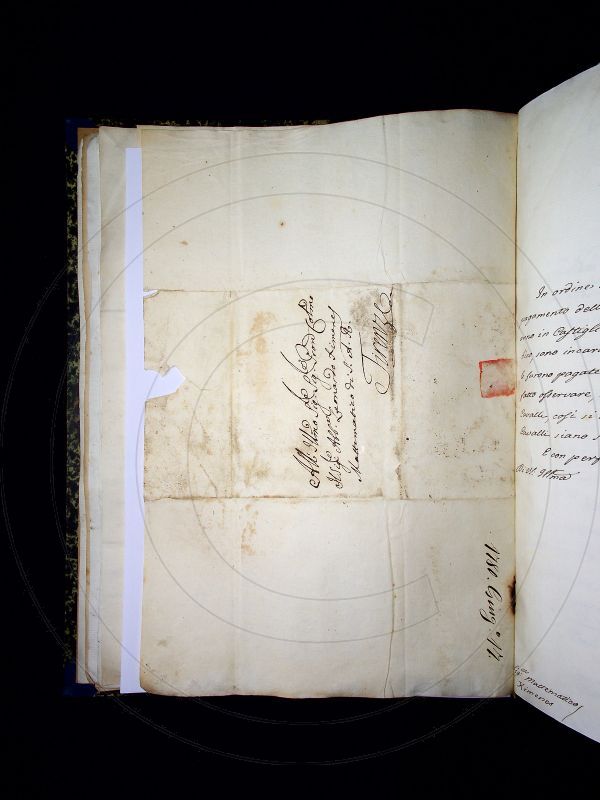 All' Illmo Sig. Sig. Pron Colmo
Il Sig. Abe. Leonardo Ximenes
Mattematico di S. A. R.
Firenze
1781. Giug.° 12.
In ordine
pagamento dell
sono incar
furono pagate
fatto osservare
Cavalli, così
Cavalli siano
E con perf
Di V. S. Illma
Mattematico
Ximenes